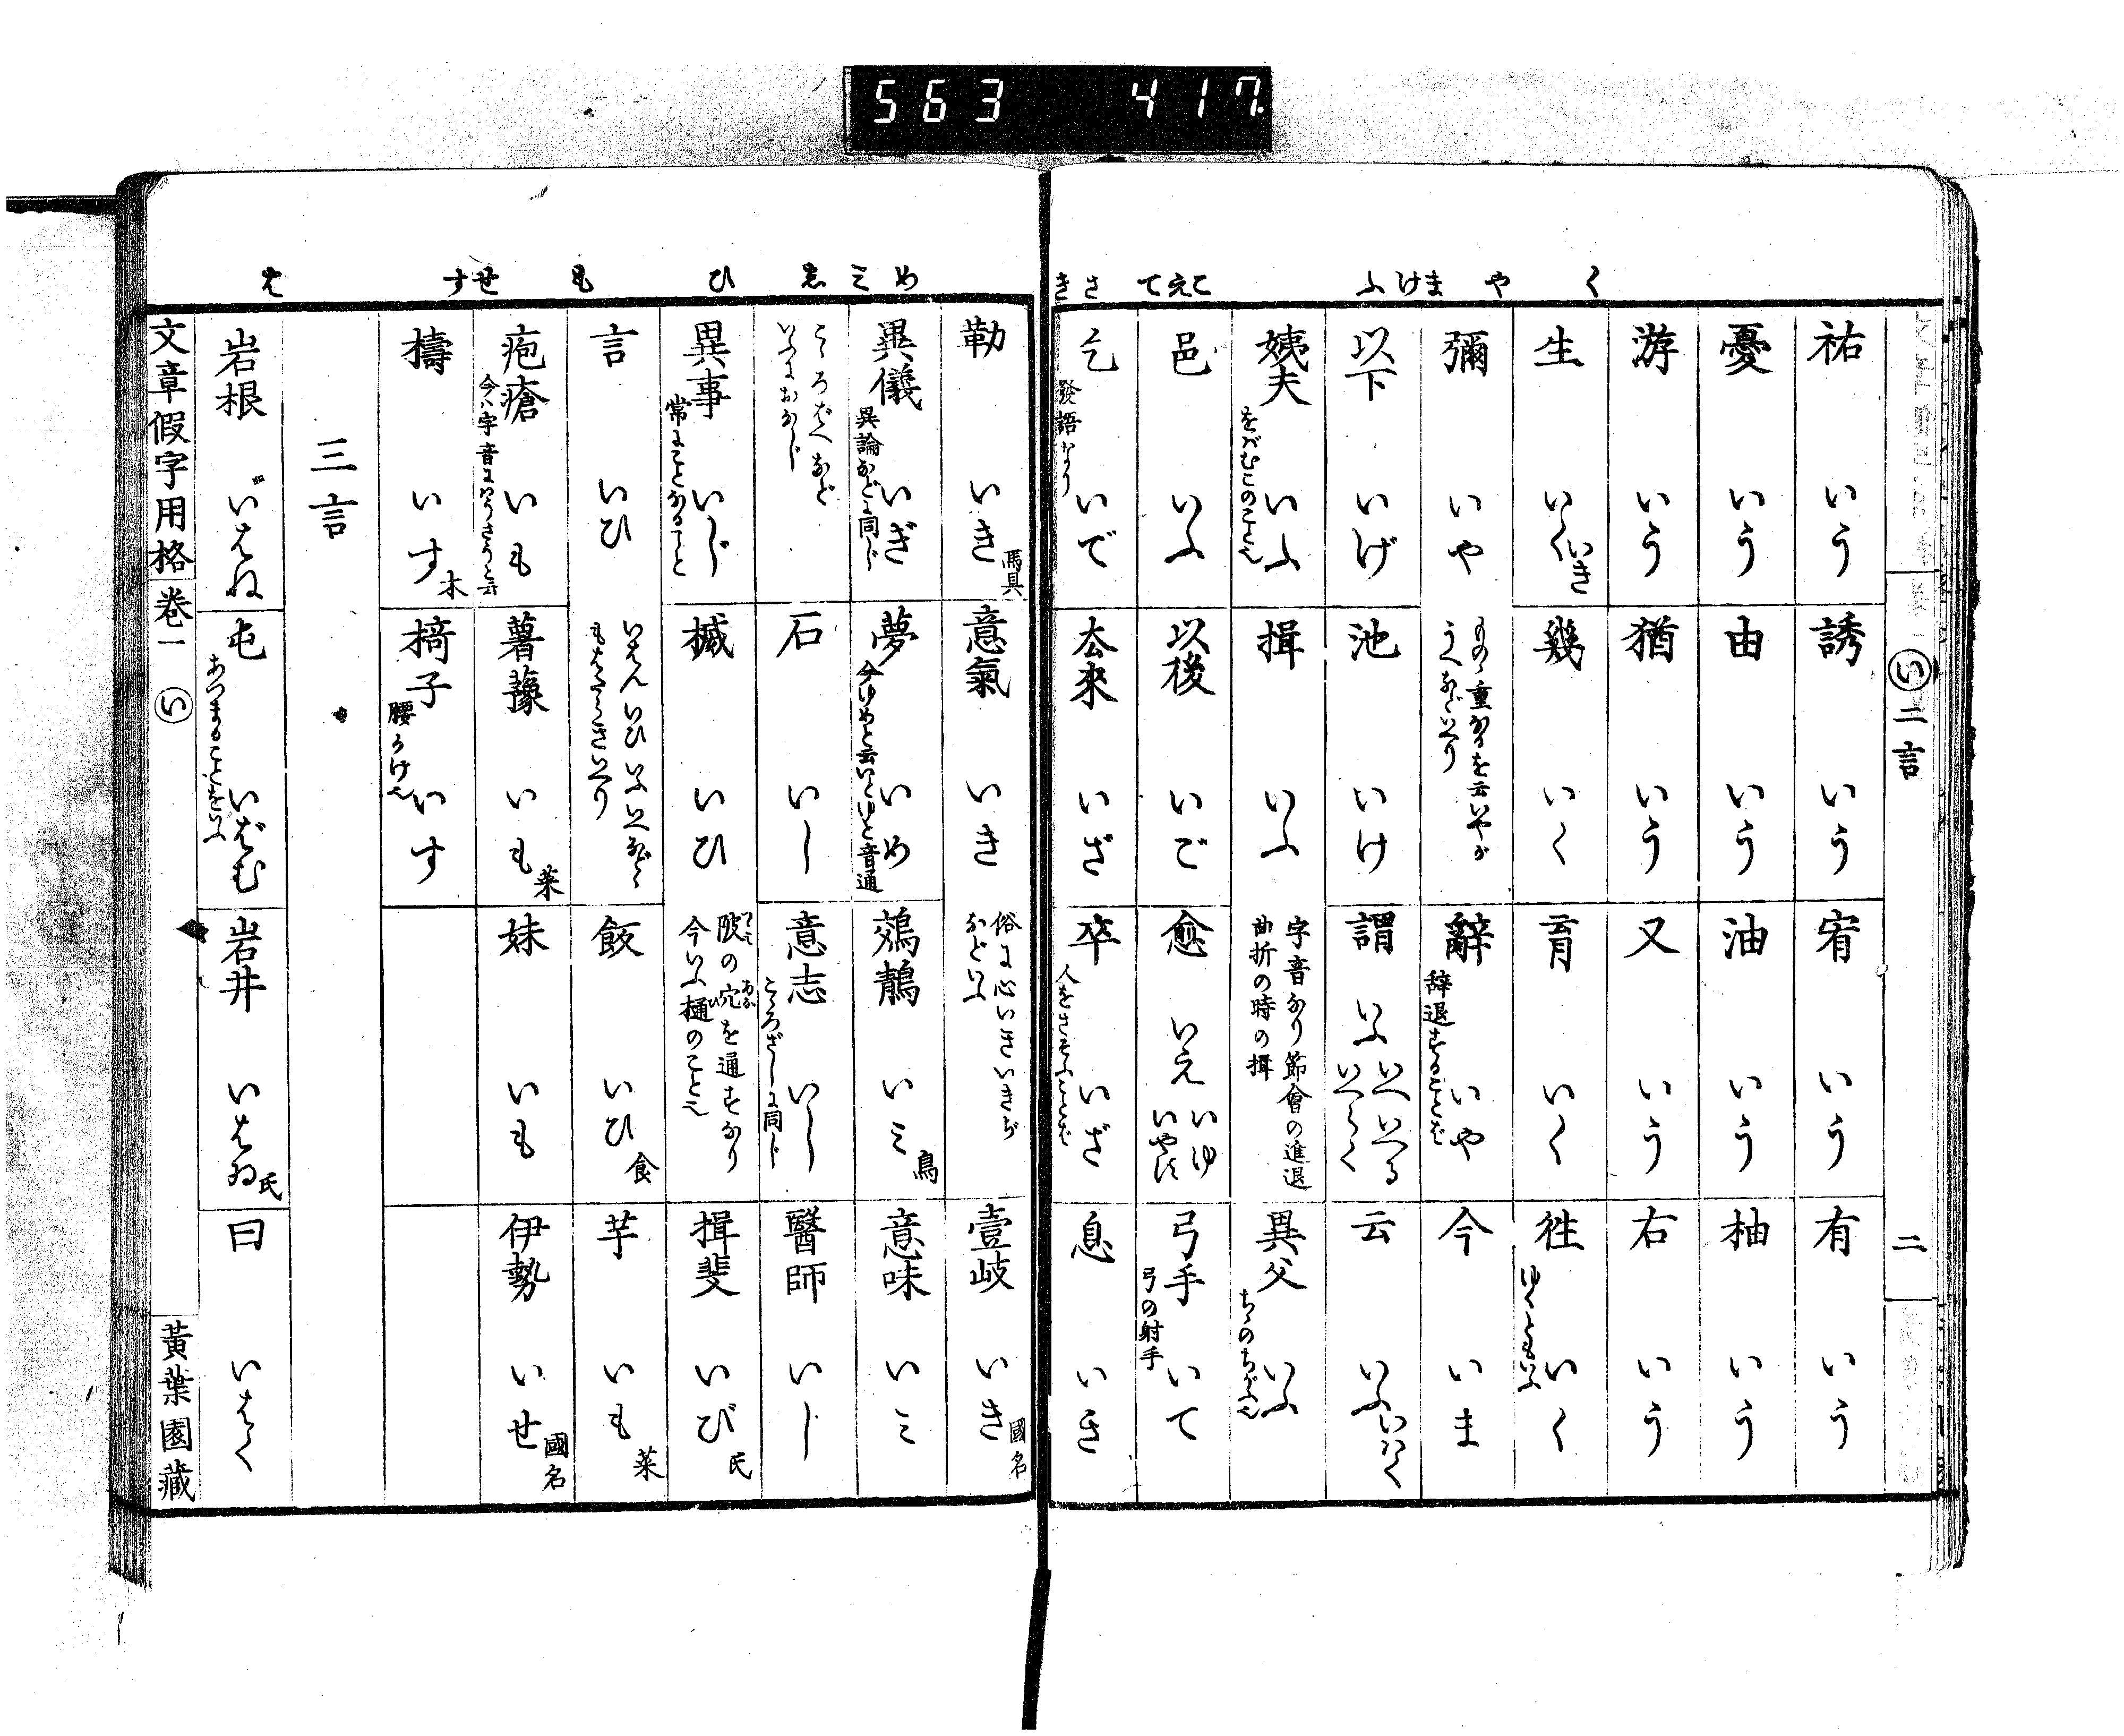 563 417.
く や まけふ こえて さき
い 二言 二
祐 いう 誘 いう 宥 いう 有 いう
憂 いう 由 いう 油 いう 柚 いう
游 いう 猶 いう 又 いう 右 いう
生 いくいき 幾 いく 育 いく 往 ゆくともいふ いく
彌 いや ものゝ重なるを云いやが うへなどいへり 辭 辞退することば いや 今 いま
以下 いげ 池 いけ 謂 いふ いへいへる いへらく 云 いふいはく
姨夫 をばむこのこと也 いふ 揖 いふ 字音なり節會の進退 曲折の時の揖 異父 ちゝのちがふ也 いふ
邑 いふ 以後 いご 愈 いえ いゆ いやす 弓手 弓の射手 いて
乞 發語なり いで 去來 いざ 卒 人をさそふことば いざ 息 いき
め ミ し ひ も せす は
勒 いき 馬具 意氣 いき 俗に心いきいきぢ などいふ 壹岐 いき 國名
異儀 異論などに同じ いぎ 夢 今ゆめと云いとゆと音通 いめ 鵁鶄 いミ 鳥 意味 いミ
こゝろばへなど いふにおなじ 石 いし 意志 こゝろざしに同じ いし 醫師 いし
異事 常にことなること いじ 槭 いひ 陂の穴を通すなり 今いふ樋のこと也 揖斐 いび 氏
言 いひ いはんいひいふいへなどゝ もはたらきいへり 飯 いひ 食 芋 いも 菜
疱瘡 今ハ字音にはうさうと云 いも 薯蕷 いも 菜 妹 いも 伊勢 いせ 國名
檮 いす 木 椅子 腰かけ也 いす
三言
岩根 いはね 屯 あつまることをいふ いばむ 岩井 いはゐ 氏 曰 いはく
文章假字用格 卷一 い 黃葉園藏